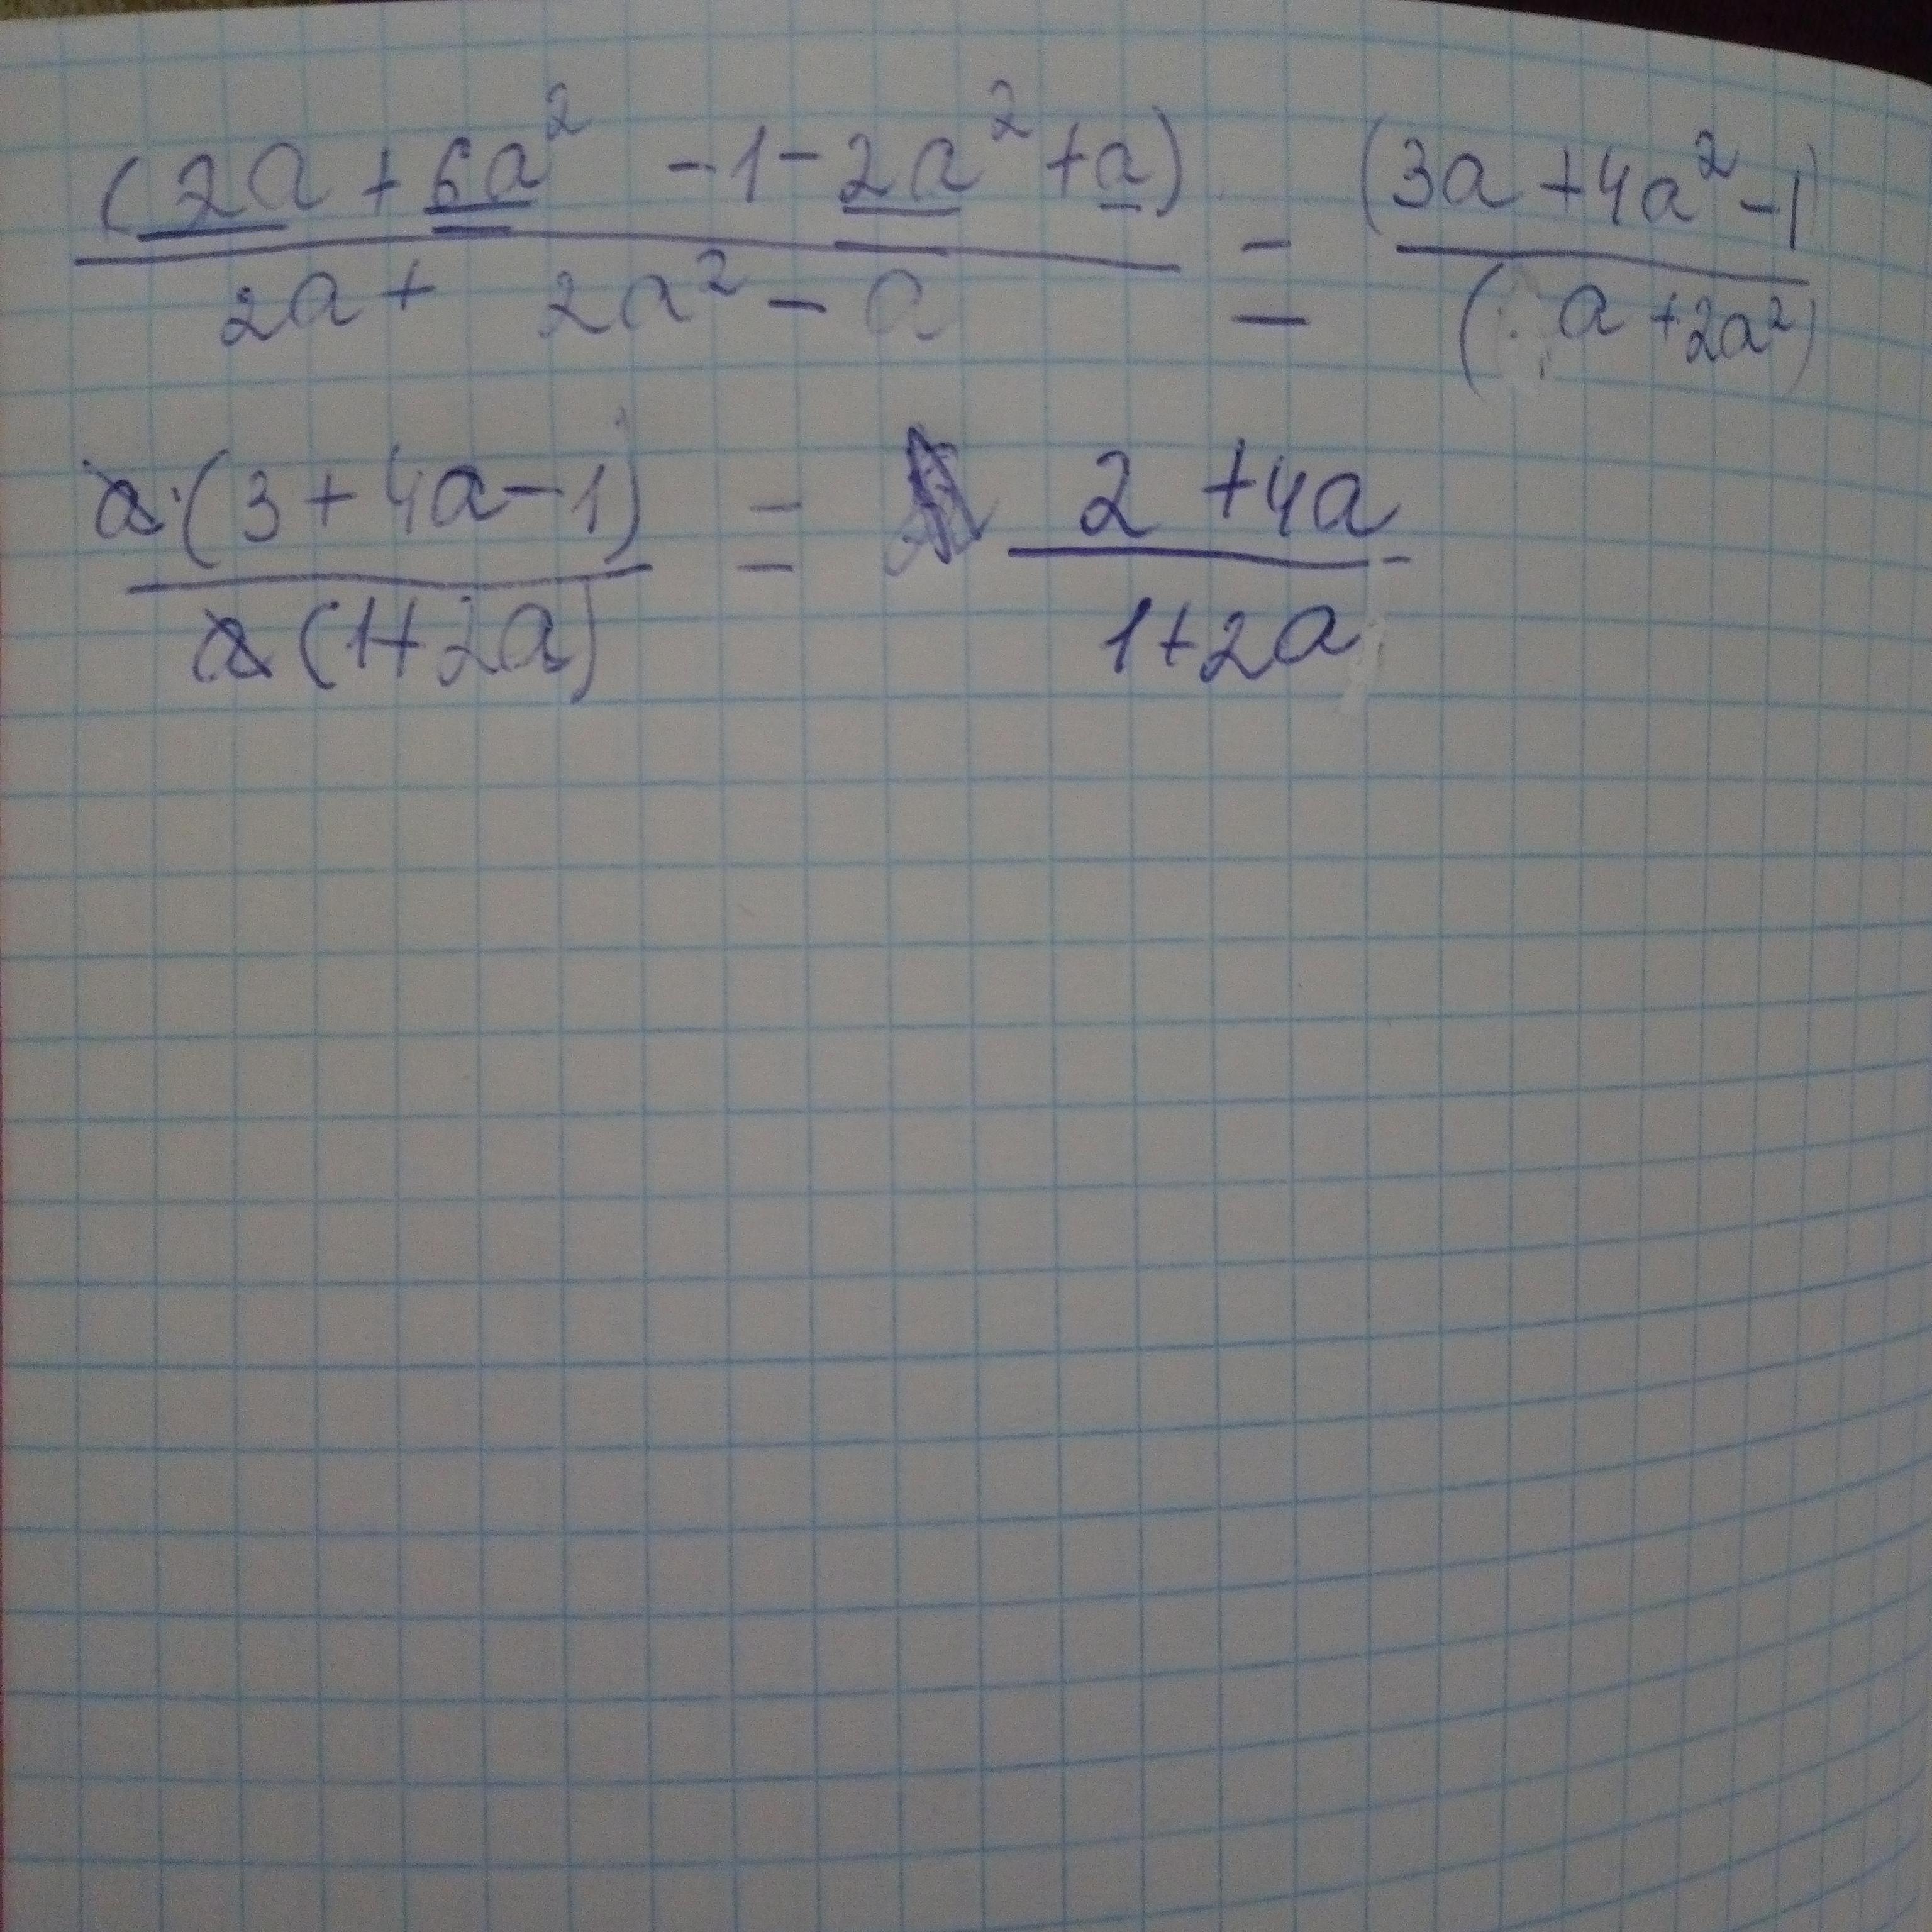 (2a + 6a² - 1 - 2a² + a) / 2a + 2a² - a = (3a + 4a² - 1) / (a + 2a²)
a·(3 + 4a - 1) / a(1 + 2a) = 2 + 4a / 1 + 2a